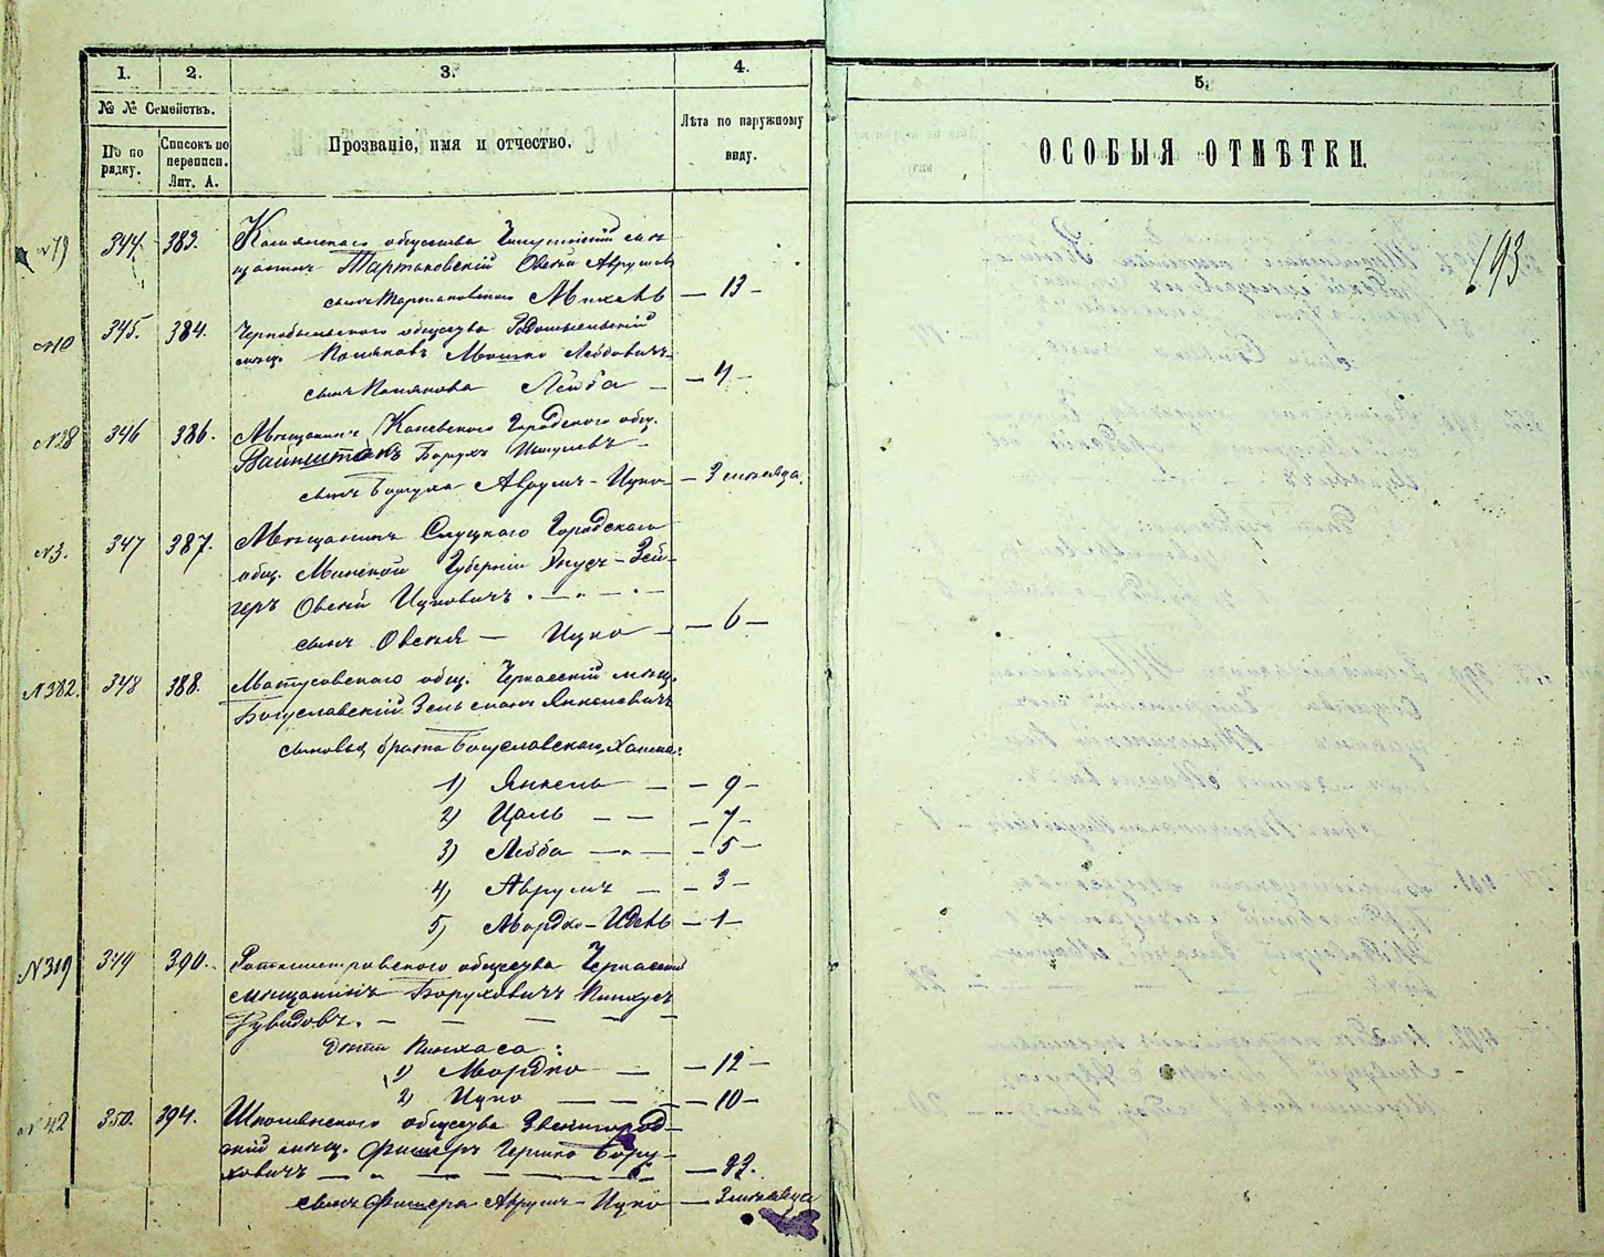 1. 2. 3. 4.
№ № Семействъ.
По по рядку.
Списокъ по переписи. Лит. А.
Прозваніе, имя и отчество.
Лѣта по наружному виду.
№19 344. 383. общества
мѣщанинъ Тартаковскій Овсей Аврумовъ
сынъ Тартаковскаго Михель — 13 —
№10 345. 384. Чернобыльскаго общества Радомысльскій
мѣщ. Поляковъ Мошко Лейбовичъ
сынъ Полякова Лейба — — 4 —
№28 346 386. Мѣщанинъ Каневскаго Городскаго общ.
Вайнштокъ Борухъ
сынъ Боруха Аврумъ-Ицко — 3 мѣсяца.
№3. 347 387. Мѣщанинъ Слуцкаго Городскаго
общ. Минской Губерніи -Зей-
геръ Овсей Ицковичъ . — „ — . —
сынъ Овсея — Ицко — — 6 —
№382. 348 388. Матусовскаго общ. Черкасскій мѣщ.
Богуславскій Зельманъ Янкелевичъ
сыновья брата Богуславскаго,
1) Янкель — — 9 —
2) Цаль — — — 7 —
3) Лейба — „ — — 5 —
4) Аврумъ — — 3 —
5) Мордко-Идель — 1 —
№319 349 390. Ротмистровскаго общества Черкасскій
мѣщанинъ Боруховичъ Пинхусъ
Дувидовъ. — — — — —
дѣти Пинхаса:
1) Мордко — — 12 —
2) Ицко — — — — 10 —
№42 350. 394. Шполянскаго общества Звенигород-
скій мѣщ. Фишеръ Гершко Бору-
ховичъ — „ — — — — 23.
сынъ Фишера Аврумъ-Ицко — 3 мѣсяца
5.
ОСОБЫЯ ОТМѢТКИ.
193